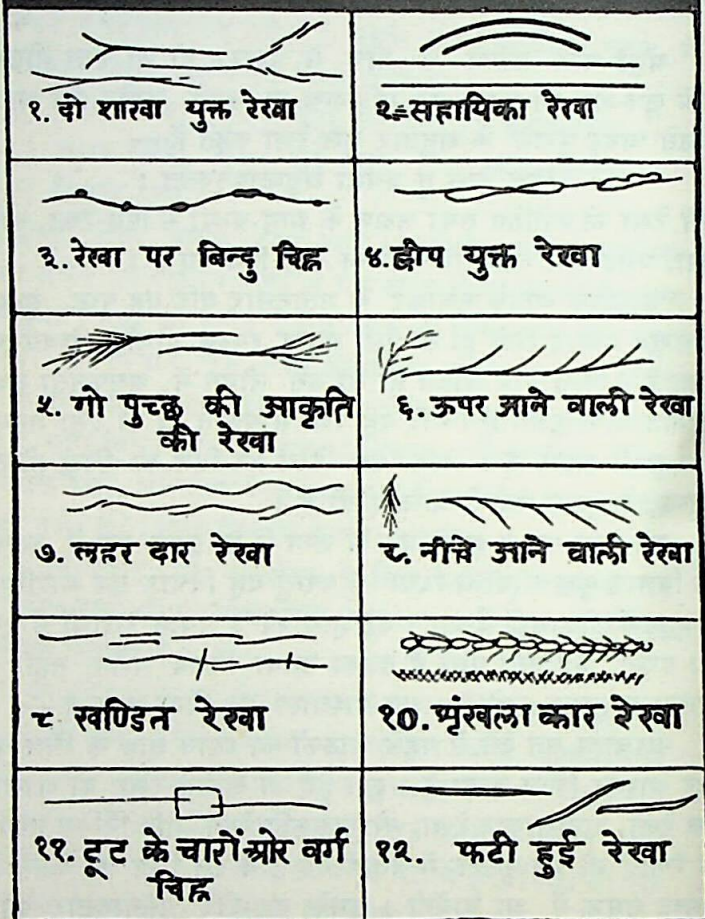 १. दो शाखा युक्त रेखा
२= सहायिका रेखा
३. रेखा पर बिन्दु चिह्न
४. द्वीप युक्त रेखा
५. गो पुच्छ की आकृति
की रेखा
६. ऊपर आने वाली रेखा
७. लहर दार रेखा
८. नीचे आने वाली रेखा
९ खण्डित रेखा
१०. श्रृंखला कार रेखा
११. टूट के चारों ओर वर्ग
चिह्न
१२. फटी हुई रेखा